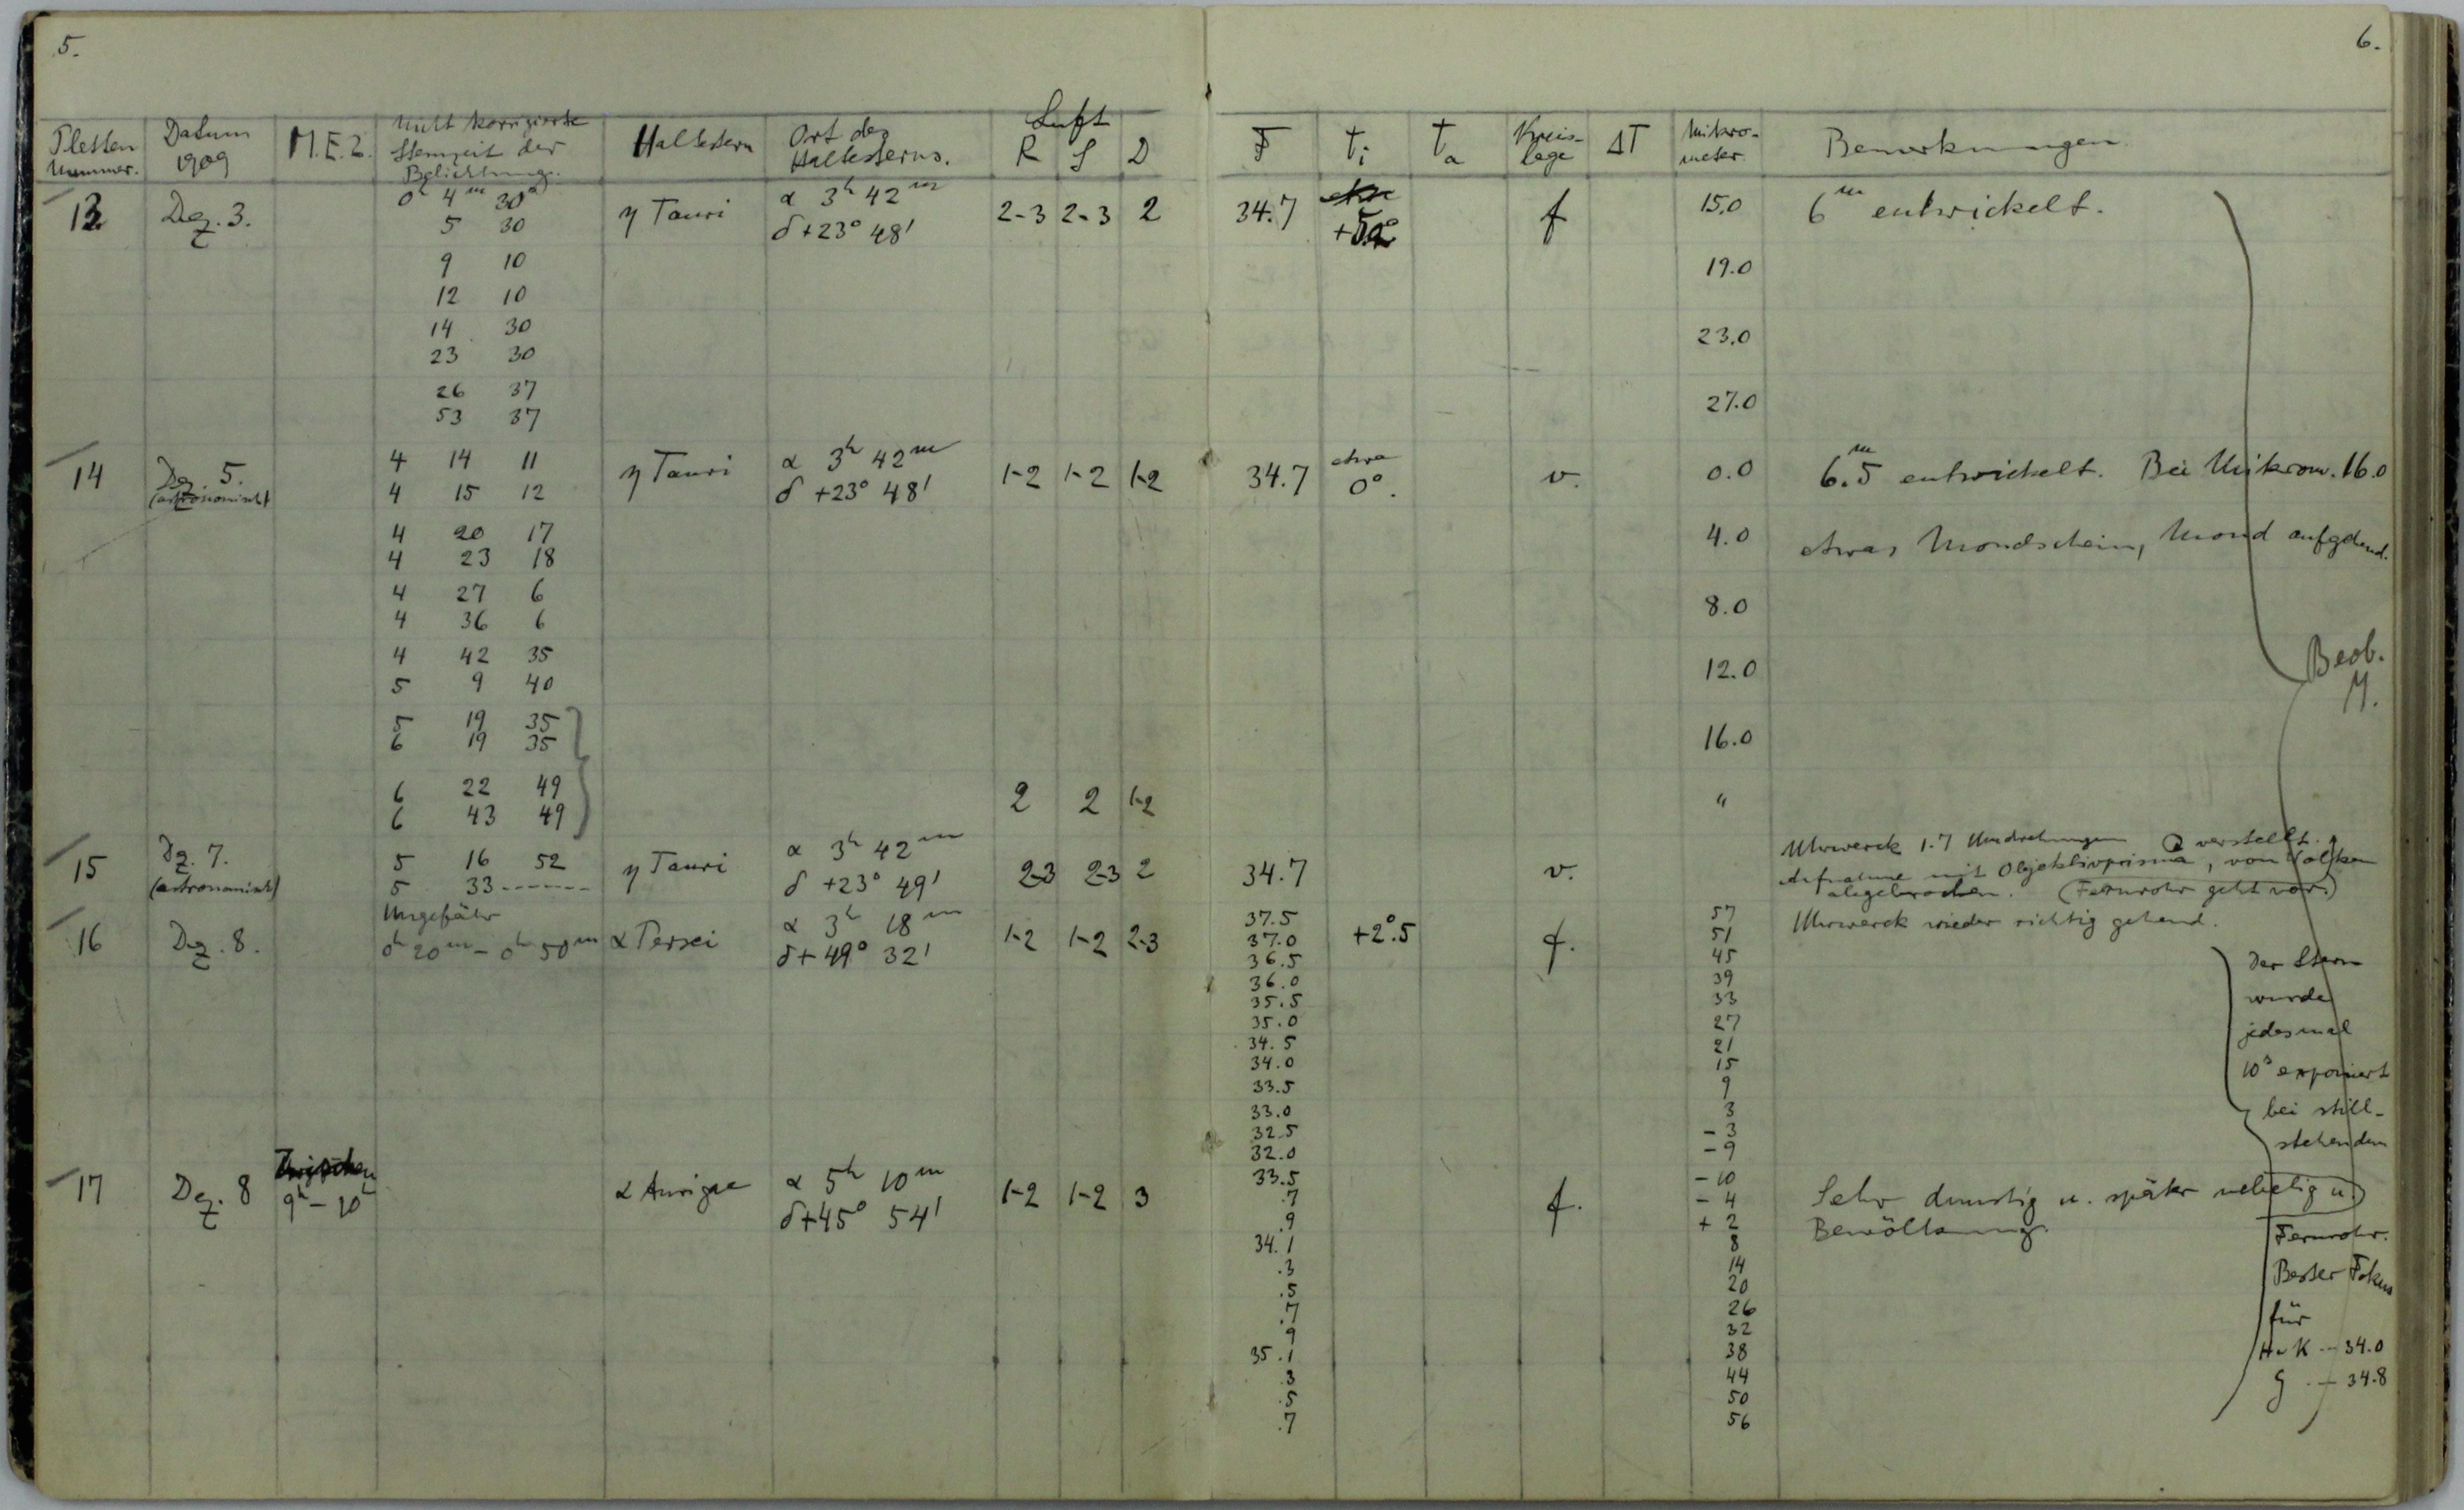 5.
6.
Luft
Platten Nummer. Datum 1909 M.E.Z. Nicht korrigierte Sternzeit der Belichtung. Haltestern Ort des Haltesterns. R S D F ti ta Kreis-lage ΔT Mikro-meter. Bemerkungen
13 Dez. 3. 0h 4m 30s η Tauri α 3h 42m 2-3 2-3 2 34.7 f 15.0 6m entwickelt.
5 30 δ+23° 48'
9 10 19.0
12 10
14 30 23.0
23 30
26 37 27.0
53 37
14 Dez. 5. 4 14 11 η Tauri α 3h 42m 1-2 1-2 1-2 34.7 etwa v. 0.0 6.m5 entwickelt. Bei Mikrom. 16.0
(astronomisch) 4 15 12 δ +23° 48' 0°.
4 20 17 4.0 etwas Mondschein, Mond aufgehend.
4 23 18
4 27 6 8.0
4 36 6
4 42 35 12.0 Beob.
5 9 40 M.
5 19 35 16.0
6 19 35
6 22 49 2 2 1-2 "
6 43 49
15 Dz. 7. 5 16 52 η Tauri α 3h 42m 2-3 2-3 2 34.7 v. Uhrwerck 1.7 Umdrehungen verstellt.
(astronomisch) 5 33------- δ +23° 49' Aufnahme mit Objektivprisma, von Wolken
abgebrochen. (Fernrohr geht vor.)
16 Dez. 8. Ungefähr α Persei α 3h 18m 1-2 1-2 2-3 37.5 +2°.5 f. 57 Uhrwerck wieder richtig gehend.
0h 20m – 0h 50m δ+49° 32' 37.0 51
36.5 45 Der Stern
36.0 39
35.5 33 wurde
35.0 27 jedesmal
34.5 21
34.0 15 10s exponiert
33.5 9
33.0 3 bei still-
32.5 -3 stehendem
32.0 -9
17 Dez. 8 Zwischen 9h – 10h α Aurigae α 5h 10m 1-2 1-2 3 33.5 f. -10 Sehr dunstig u. später nebelig u.
δ+45° 54' .7 -4 Bewölkung.
.9 +2 Fernrohr.
34.1 8
.3 14 Bester Fokus
.5 20
.7 26 für
9 32
35.1 38 H u K -- 34.0
.3 44 G -- 34.8
.5 50
.7 56